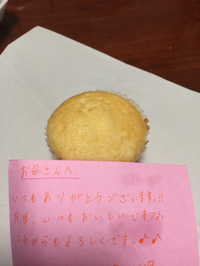 お母さんへ
いつもありがとうございます!!
毎日、いつもおいしいですね
これからもよろしくです。♪♪